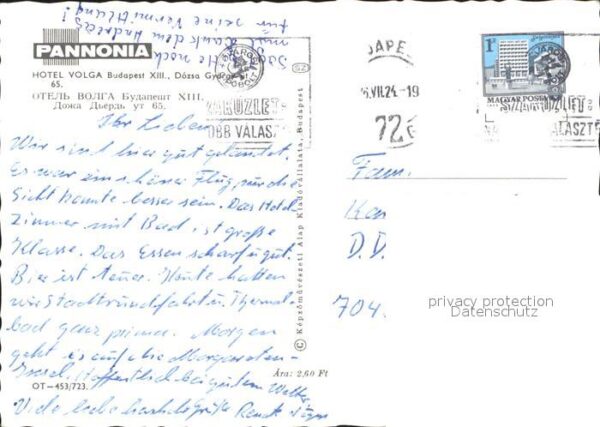 für seine Vermittlung!
PANNONIA
HOTEL VOLGA Budapest XIII., Dózsa György
65.
ОТЕЛЬ ВОЛГА Будапешт XIII.
Дожа Дьердь ут 65.
Ihr Lieben
Wir sind hier gut gelandet.
Es war ein schöner Flug, nur die
Sicht konnte besser sein. Das Hotel
Zimmer mit Bad, ist große
Klasse. Das Essen scharf u. gut.
Bier ist teuer. Heute hatten
wir Stadtrundfahrt u. Thermal-
bad ganz prima. Morgen
geht es auf die Margareten-
Insel. Hoffentlich bei gutem Wetter.
Viele liebe Grüße
OT-453/723.
Ára: 2,60 Ft
© Képzőművészeti Alap Kiadóvállalata, Budapest
VII.24.-19
72
1 Ft
MAGYAR POSTA
Fam.
Kar
D.D.
704.
privacy protection
Datenschutz